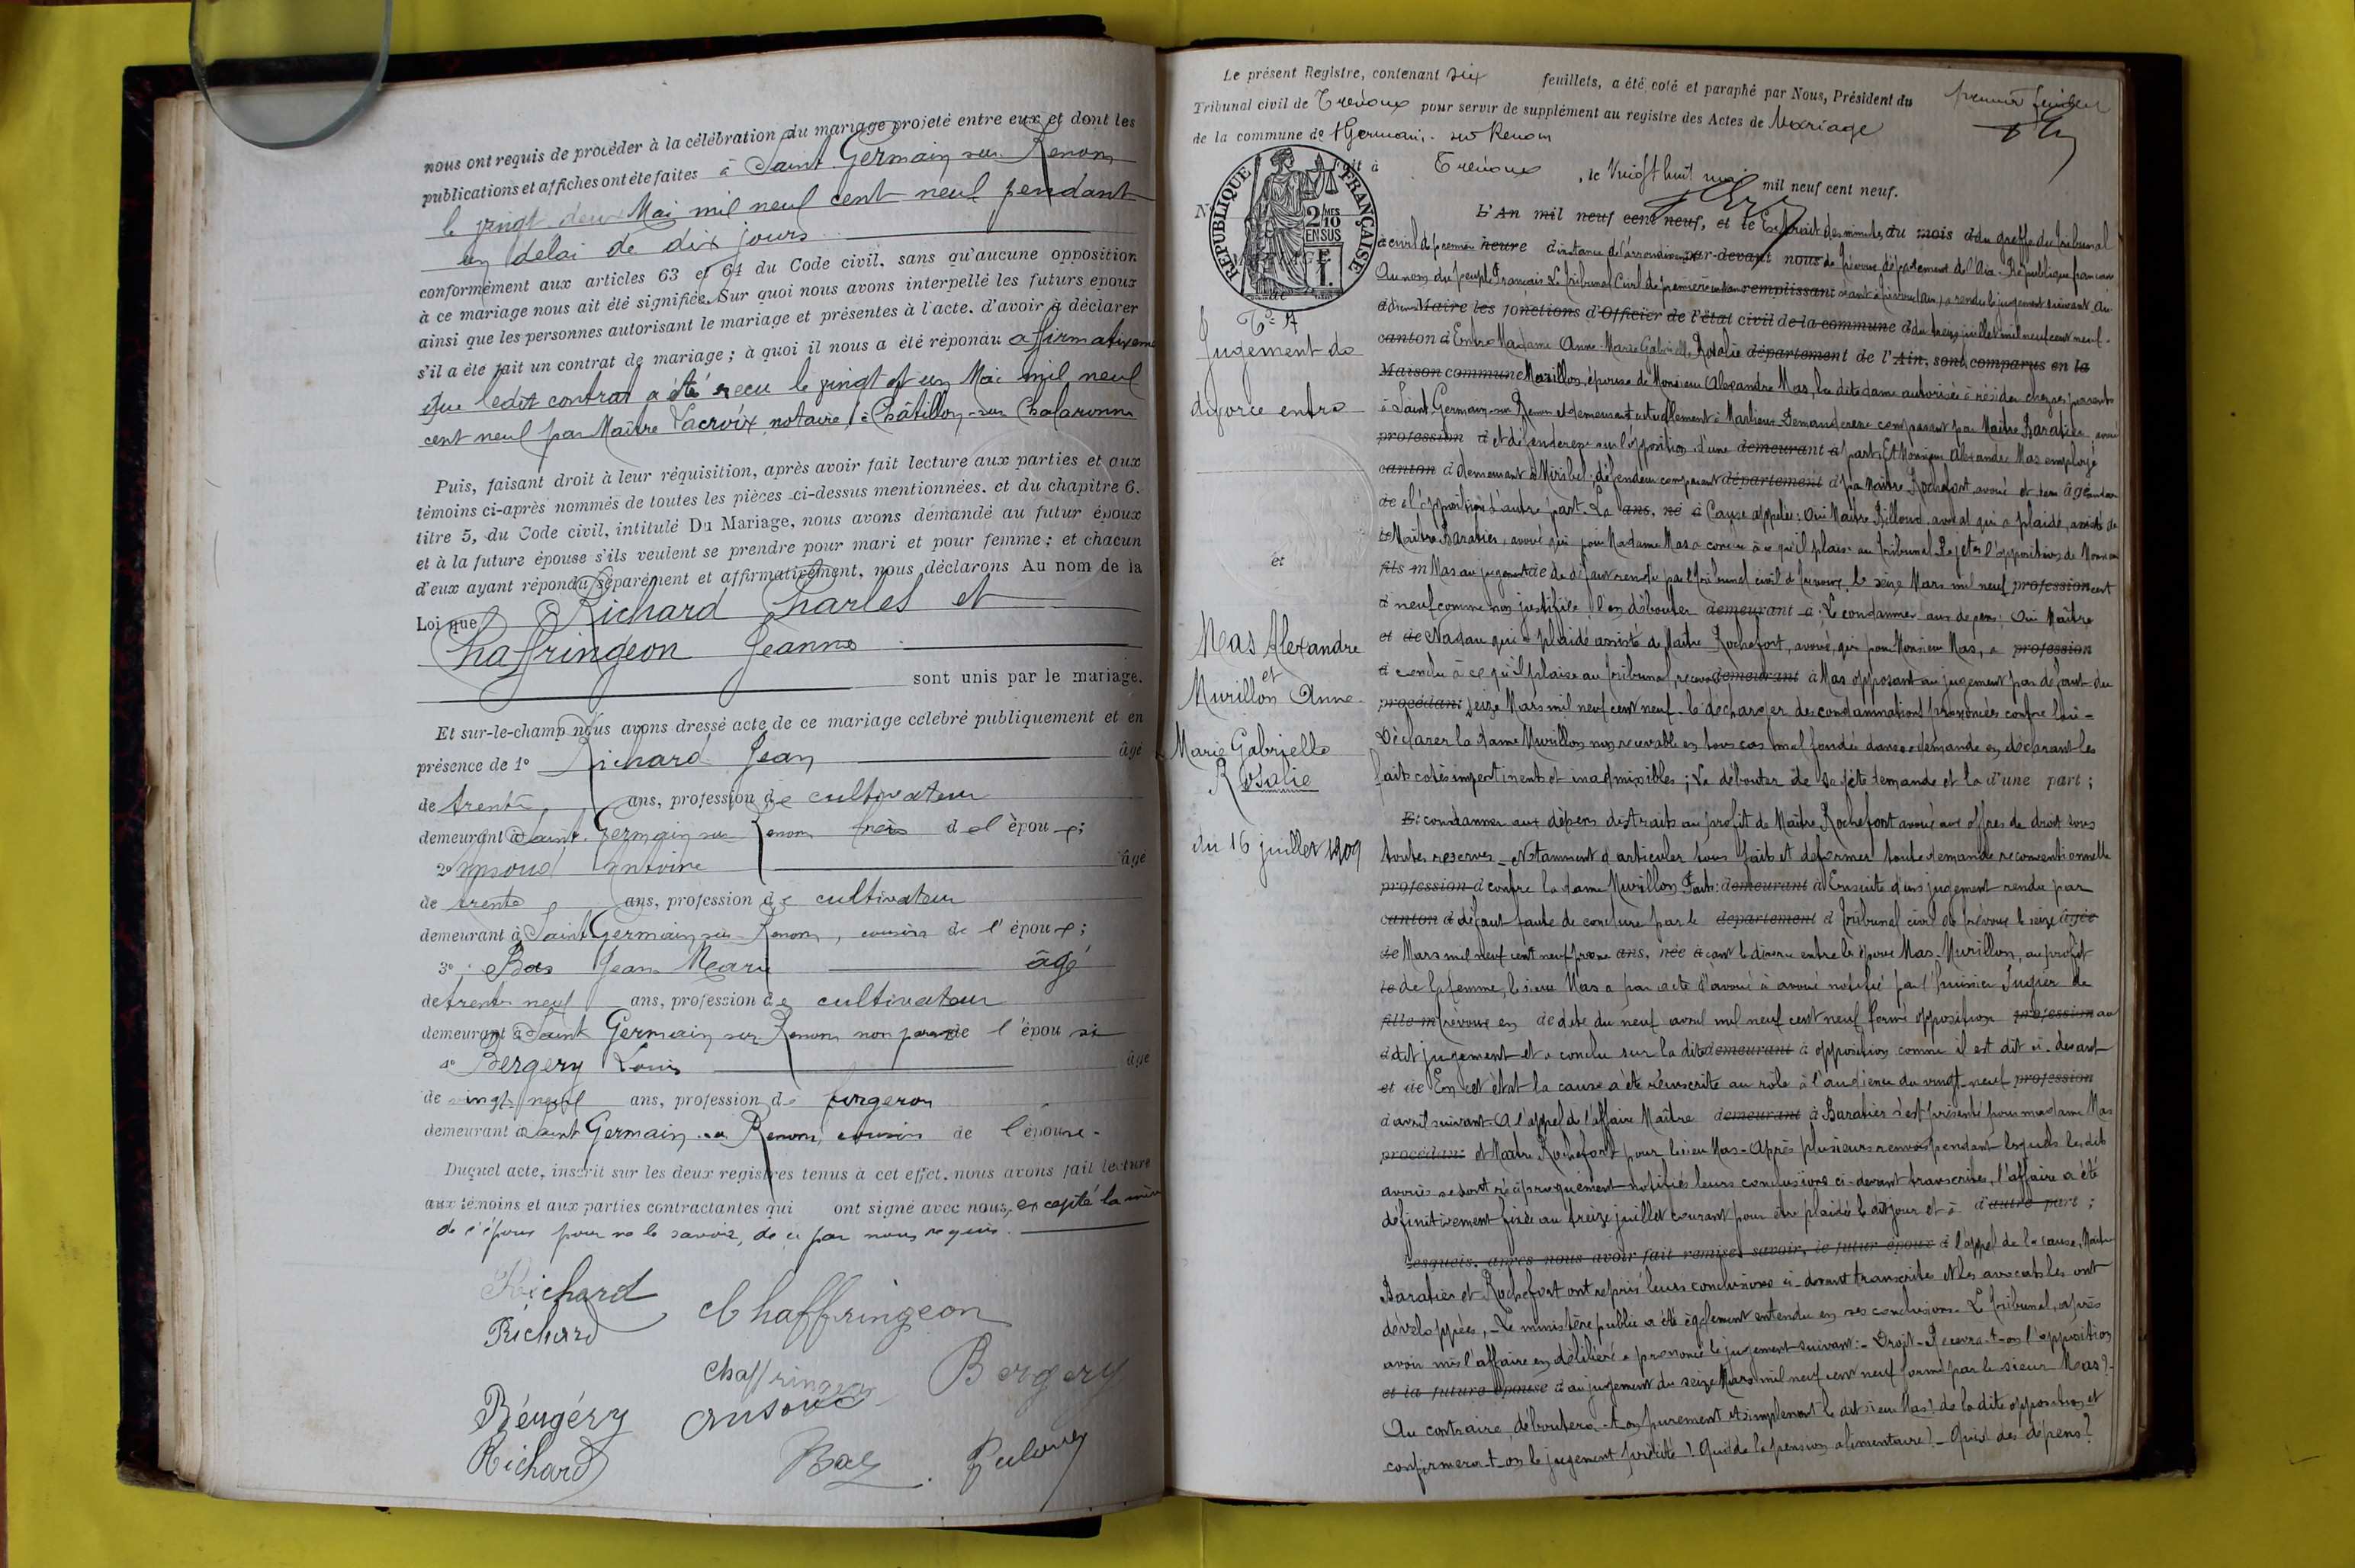 nous ont requis de procéder à la célébration du mariage projeté entre eux et dont les
publications et affiches ont été faites à Saint Germain sur Renom
le vingt deux Mai mil neuf cent neuf pendant
un délai de dix jours
conformément aux articles 63 et 64 du Code civil, sans qu'aucune opposition
à ce mariage nous ait été signifiée. Sur quoi nous avons interpellé les futurs époux
ainsi que les personnes autorisant le mariage et présentes à l'acte, d'avoir à déclarer
s'il a été fait un contrat de mariage ; à quoi il nous a été répondu affirmativeme
que ledit contrat a été reçu le vingt et un Mai mil neuf
cent neuf par Maître Lacroix notaire à Châtillon-sur Chalaronne
Puis, faisant droit à leur réquisition, après avoir fait lecture aux parties et aux
témoins ci-après nommés de toutes les pièces ci-dessus mentionnées, et du chapitre 6,
titre 5, du Code civil, intitulé Du Mariage, nous avons demandé au futur époux
et à la future épouse s'ils veulent se prendre pour mari et pour femme ; et chacun
d'eux ayant répondu séparément et affirmativement, nous déclarons Au nom de la
Loi que Richard Charles et
Chaffringeon Jeanne
sont unis par le mariage.
Et sur-le-champ nous avons dressé acte de ce mariage célébré publiquement et en
présence de 1° Richard Jean âgé
de trente ans, profession de cultivateur
demeurant à Saint Germain sur Renom frère de l'époux ;
2° Ansoud Antoine âgé
de trente ans, profession de cultivateur
demeurant à Saint Germain sur Renom, cousin de l'époux ;
3° Bas Jean Marie âgé
de trente neuf ans, profession de cultivateur
demeurant à Saint Germain sur Renom non parent de l'épouse
4° Bergery Louis âgé
de vingt neuf ans, profession de forgeron
demeurant à Saint Germain sur Renom, cousin de l'épouse.
Duquel acte, inscrit sur les deux registres tenus à cet effet, nous avons fait lecture
aux témoins et aux parties contractantes qui ont signé avec nous, excepté la mère
de l'époux pour ne le savoir, de ce par nous requis.
Richard
Chaffringeon
Richard
Chaffringeon
Bergery
Béugéry
Ansoud
Richard
Bas
Le présent Registre, contenant six feuillets, a été coté et paraphé par Nous, Président du
premier feuillet
Tribunal civil de Trévoux pour servir de supplément au registre des Actes de Mariage
de la commune de St Germain-sur Renom
Fait à Trévoux, le vingt huit mai mil neuf cent neuf.
RÉPUBLIQUE FRANÇAISE
2 MES
10
EN SUS
Jugement de
divorce entre
Mas Alexandre
et
Murillon Anne-
Marie Gabrielle
Rosalie
du 16 juillet 1909
L'An mil neuf cent neuf, et le Extrait des minutes du mois d du greffe du Tribunal
civil de première heure d'instance de l'arrondissement par-devant nous de Trévoux département de l'Ain. République française
Au nom du peuple Français Le Tribunal Civil de première instance remplissant séant à Trévoux (Ain) a rendu le jugement suivant
Maire les fonctions d'Officier de l'état civil de la commune d du treize juillet mil neuf cent neuf.
canton d Entre Madame Anne-Marie Gabrielle Rosalie département de l'Ain, sont comparus en la
Maison commune Murillon, épouse de Monsieur Alexandre Mas, la dite dame autorisée à résider chez ses parents
à Saint Germain-sur Renom et demeurant actuellement à Marlieux Demanderesse comparant par Maître Baratier avoué
profession d et défenderesse sur l'opposition d'une demeurant à part, Et Monsieur Alexandre Mas employé
canton d demeurant à Miribel, défendeur comparant département d par Maître Rochefort avoué et demandeur âgé
de à l'opposition d'autre part. La ans, né à Cause appelée : Ouï Maître Billoud avocat qui a plaidé, assisté de
Maître Baratier, avoué qui pour Madame Mas a conclu à ce qu'il plaise au Tribunal Rejeter l'opposition de Monsieur
fils m Mas au jugement de de défaut rendu par le Tribunal civil de Trévoux le seize Mars mil neuf profession cent
d neuf comme non justifiée l'en débouter demeurant à ; Le condamner aux dépens ; Ouï Maître
et de Nadau qui a plaidé assisté de Maître Rochefort, avoué, qui pour Monsieur Mas, a profession
d conclu à ce qu'il plaise au Tribunal, recevoir demeurant à Mas opposant au jugement par défaut du
procédant seize Mars mil neuf cent neuf. le décharger des condamnations prononcées contre lui -
Déclarer la dame Murillon non recevable en tous cas mal fondée dans sa demande en déclarant les
faits cotés impertinents et inadmissibles ; La débouter de sa dite demande et la d'une part ;
Et condamner aux dépens distraits au profit de Maître Rochefort avoué aux offres de droit sous
toutes réserves - Notamment d'articuler tous faits et de former toute demande reconventionnelle
profession d contre la dame Murillon Faits : demeurant à Ensuite d'un jugement rendu par
canton d défaut faute de conclure par le département d Tribunal civil de Trévoux le seize âgée
de Mars mil neuf cent neuf prononçant ans, née à le divorce entre les époux Mas-Murillon, au profit
le de la femme, le sieur Mas a par acte d'avoué à avoué notifié par l'huissier Jugier de
fille m Trévoux en de date du neuf avril mil neuf cent neuf formé opposition profession au
d dit jugement et a conclu sur la dite demeurant à opposition comme il est dit ci-devant
et de En cet état la cause a été réinscrite au rôle à l'audience du vingt-neuf profession
d avril suivant. A l'appel de l'affaire Maître demeurant à Baratier s'est présenté pour madame Mas
procédant et Maître Rochefort pour le sieur Mas - Après plusieurs renvois pendant lesquels les dits
avoués se sont réciproquement notifiés leurs conclusions ci-devant transcrites, l'affaire a été
définitivement fixée au treize juillet courant pour être plaidée le dit jour et à d'autre part ;
Lesquels, après nous avoir fait remise savoir, le futur époux d l'appel de la cause, Maître
Baratier et Rochefort ont repris leurs conclusions ci-devant transcrites et les avocats les ont
développées, - Le ministère public a été également entendu en ses conclusions. Le Tribunal, après
avoir mis l'affaire en délibéré a prononcé le jugement suivant : - Droit - Recevra-t-on l'opposition
et la future épouse d au jugement du seize Mars mil neuf cent neuf formé par le sieur Mas ? -
Au contraire déboutera-t-on purement et simplement le dit sieur Mas ! de la dite opposition et
confirmera-t-on le jugement précité ! Quid de la pension alimentaire ! - Quid des dépens ?